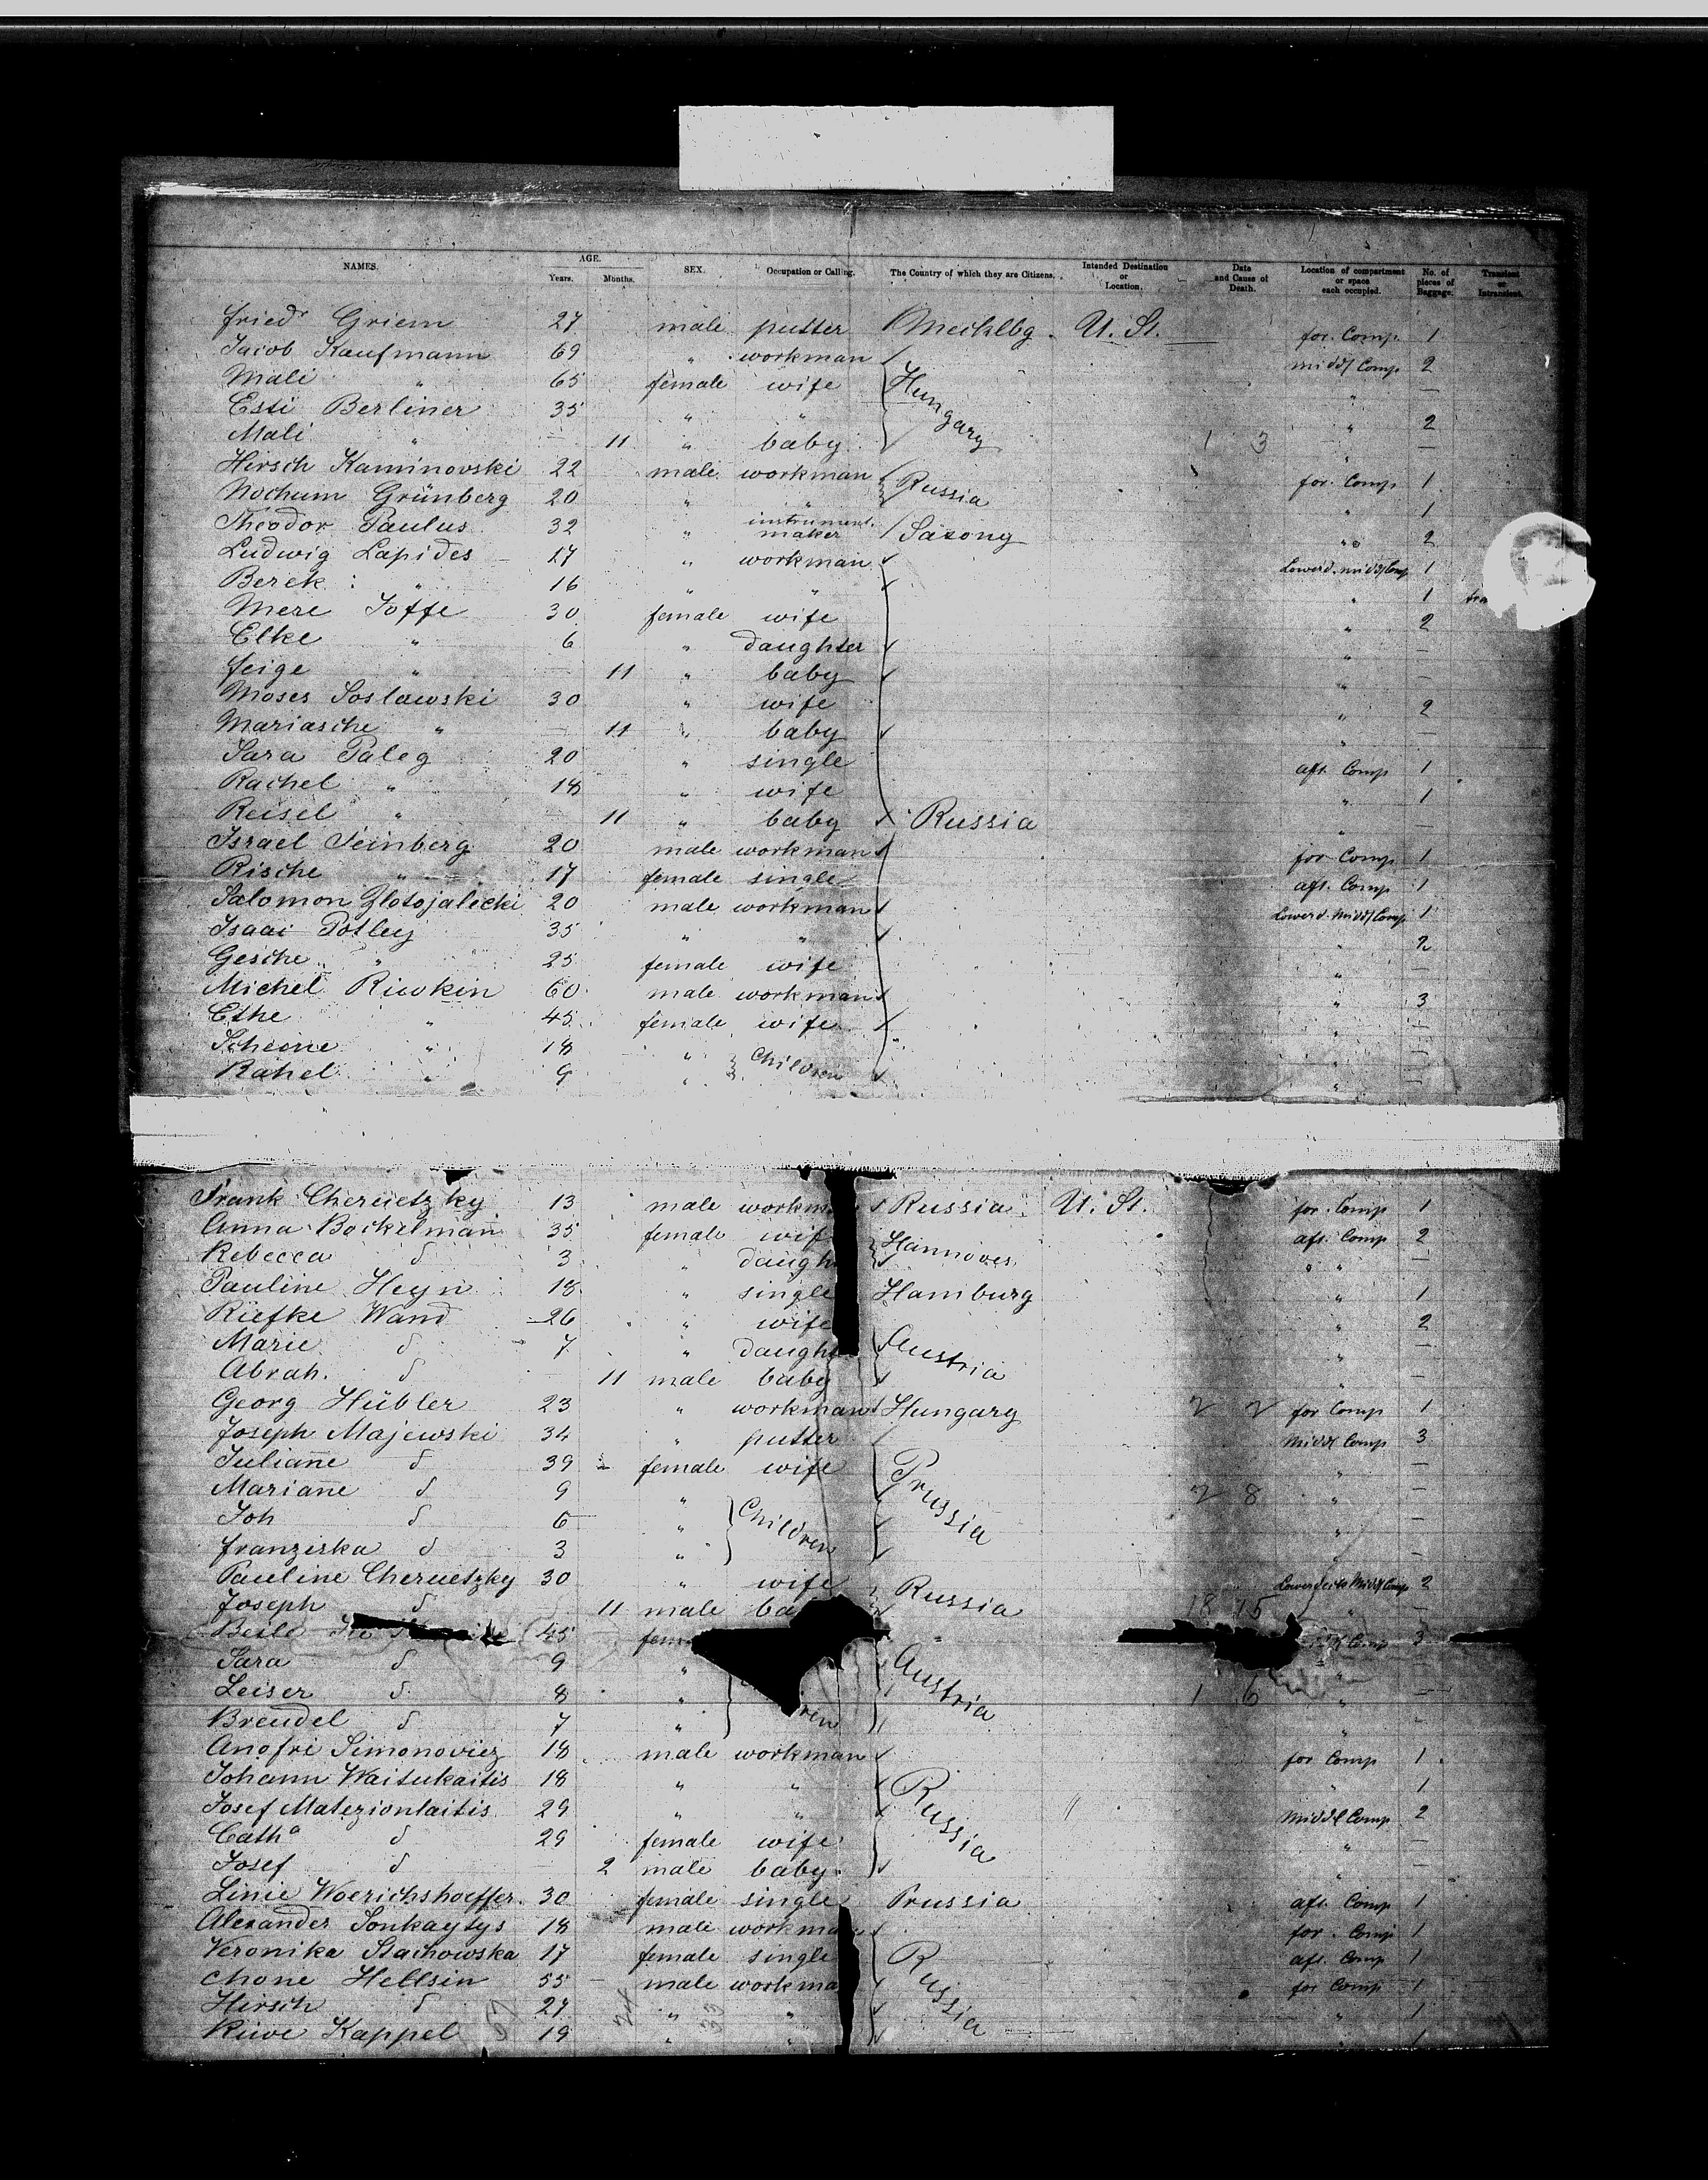 NAMES. AGE. Years. Months. SEX. Occupation or Calling. The Country of which they are Citizens. Intended Destination or Location. Date and Cause of Death. Location of compartment or space each occupied. No. of pieces of Baggage. Transient or Intransient.
Friedr Griem 27 male putter Mecklbg. U. St. for. Comp. 1
Jacob Kaufmann 69 " workman middl Comp 2
Mali " 65 female wife Hungary " —
Esti Berliner 35 " " " 2
Mali " — 11 " baby 1 3 " —
Hirsch Kaminovski 22 male workman Russia for. Comp 1
Nochum Grünberg 20 " " " 1
Theodor Paulus 32 " instrument. maker Saxony " " 2
Ludwig Lapides 17 " workman Lowerd. middl Comp 1
Berek " 16 " " " 1
Mere Joffe 30 female wife " 2
Elke " 6 " daughter " —
Feige " — 11 " baby " —
Moses Soslawski 30 " wife " 2
Mariasche " — 11 " baby " —
Sara Paleg 20 " single aft. Comp 1
Rachel " 18 " wife " 1
Reisel " 11 " baby Russia " —
Israel Feinberg 20 male workman for Comp 1
Rische " 17 female single aft. Comp 1
Salomon Zlotojalecki 20 male workman Lowerd. Middl Comp 1
Isaac Potley 35 " " " 2
Gesche " 25 female wife " —
Michel Riwkin 60 male workman " 3
Ethe " 45 female wife " —
Scheine " 18 " Children " —
Rahel " 9 " " —
Frank Cheruetzky 13 male workm Russia U. St. for. Comp 1
Anna Bockelman 35 female wif Hannover aft. Comp 2
Rebecca d 3 " daugh " " —
Pauline Heyn 18 " single Hamburg " 1
Riefke Wand 26 " wife " 2
Marie d 7 " daught Austria " —
Abrah. d 11 male baby " —
Georg Hübler 23 " workman Hungary 2 2 for Comp 1
Joseph Majewski 34 " putter Middl Comp 3
Juliane d 39 female wife Prussia " —
Mariane d 9 " 2 8 " —
Joh d 6 " Children " —
Franziska d 3 " —
Pauline Cheruetzky 30 " wife Russia Lowerdeck Middl Comp 2
Joseph d 11 male ba 18 15 " —
Beile 45 fem Comp 3
Sara d 9 " Austria " —
Leiser d 8 " 1 6 " —
Breudel d 7 " ren " —
Anofri Simonoviez 18 male workman for Comp 1
Johann Waitukaitis 18 " " Russia " 1
Josef Matezionlaitis 29 " " Middl Comp 2
Catha d 29 female wife " —
Josef d 2 male baby " —
Linie Woerichshoeffer 30 female single Prussia aft. Comp 1
Alexander Sonkaytys 18 male workma for. Comp 1
Veronika Stachowska 17 female single Russia aft. Comp 1
Chone Hellsin 55 male workma for Comp 1
Hirsch d 27 " " " 1
Riwe Kappel 19 " " " 1